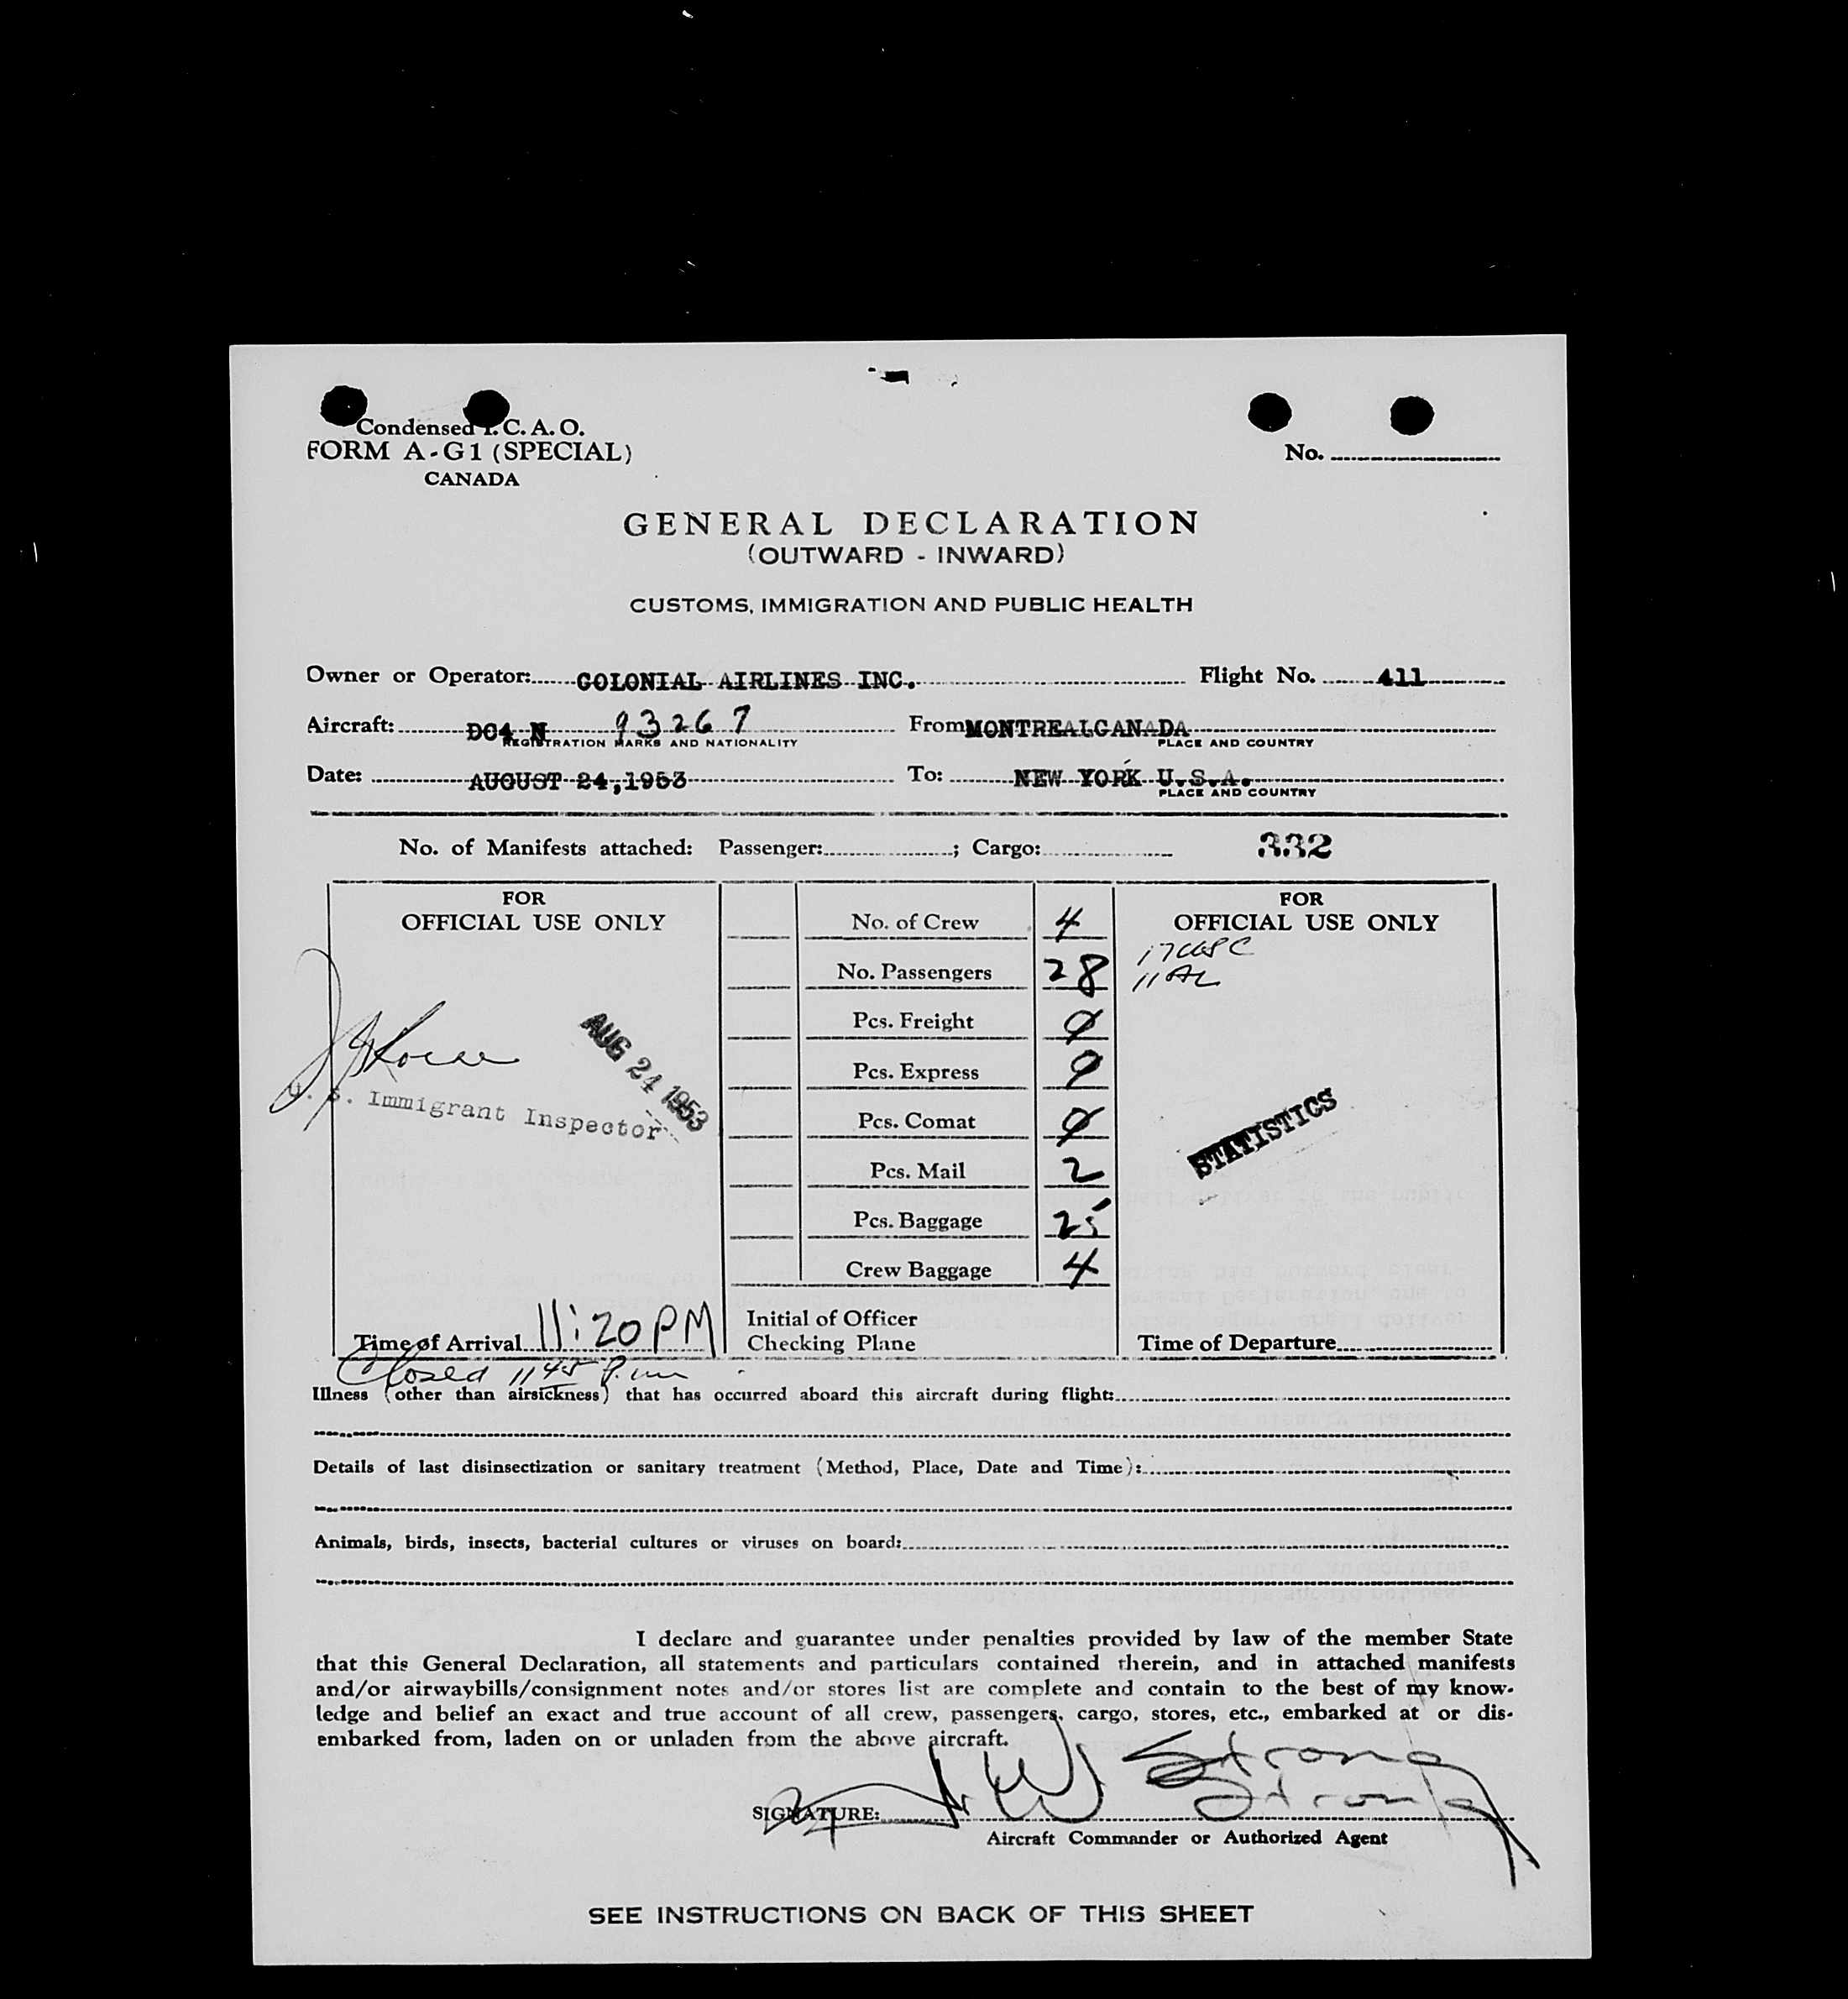 Condensed I. C. A. O.
FORM A-G1 (SPECIAL)
CANADA
No.
GENERAL DECLARATION
(OUTWARD - INWARD)
CUSTOMS, IMMIGRATION AND PUBLIC HEALTH
Owner or Operator: COLONIAL AIRLINES INC. Flight No. 411
Aircraft: DC4 N 93267 From MONTREAL CANADA
REGISTRATION MARKS AND NATIONALITY PLACE AND COUNTRY
Date: AUGUST 24,1953 To: NEW YORK U.S.A.
PLACE AND COUNTRY
No. of Manifests attached: Passenger: ; Cargo: 332
FOR
OFFICIAL USE ONLY
U. S. Immigrant Inspector
AUG 24 1953
Time of Arrival 11:20 PM
Closed 1145 P.m
No. of Crew 4
No. Passengers 28
Pcs. Freight 0
Pcs. Express 0
Pcs. Comat 0
Pcs. Mail 2
Pcs. Baggage 25
Crew Baggage 4
Initial of Officer
Checking Plane
FOR
OFFICIAL USE ONLY
17 USC
11 AL
STATISTICS
Time of Departure
Illness (other than airsickness) that has occurred aboard this aircraft during flight:
Details of last disinsectization or sanitary treatment (Method, Place, Date and Time):
Animals, birds, insects, bacterial cultures or viruses on board:
I declare and guarantee under penalties provided by law of the member State
that this General Declaration, all statements and particulars contained therein, and in attached manifests
and/or airwaybills/consignment notes and/or stores list are complete and contain to the best of my know-
ledge and belief an exact and true account of all crew, passengers, cargo, stores, etc., embarked at or dis-
embarked from, laden on or unladen from the above aircraft.
W Strong
SIGNATURE: Strong
Aircraft Commander or Authorized Agent
SEE INSTRUCTIONS ON BACK OF THIS SHEET